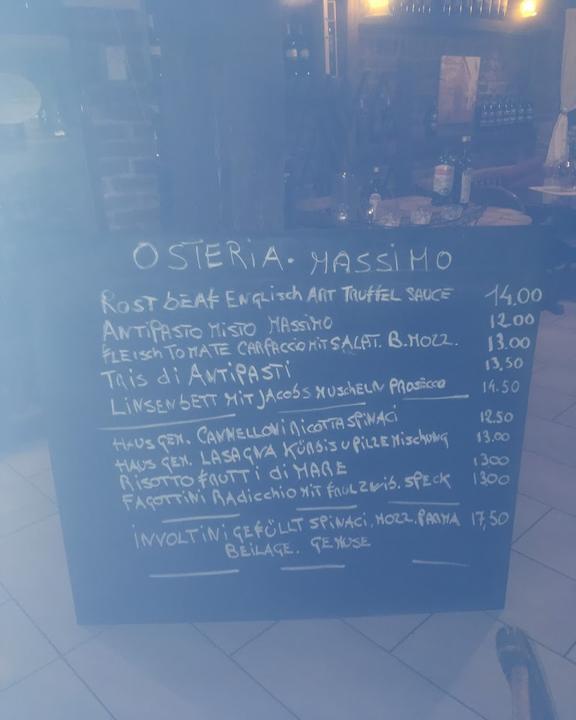 OSTERIA. MASSIMO
ROST BEAF ENGLISCH ART TRUFFEL SAUCE 14,00
ANTIPASTO MISTO MASSIMO 12.00
FLEISCH TOMATE CARPACCIO MIT SALAT. B.MOZZ. 13.00
TRIS di ANTIPASTI 13,50
LINSENBETT MIT JACOBS MUSCHELN PROSECCO 14.50
HAUS GEM. CANNELLONI RICOTTA SPINACI 12.50
HAUS GEM. LASAGNA KÜRBIS U PILZE MISCHUNG 13.00
RISOTTO FRUTTI di MARE 1300
FAGOTTINI RADICCHIO MIT SPECK 1300
INVOLTINI GEFÜLLT SPINACI, MOZZ. PARMA 17,50
BEILAGE. GEMUSE